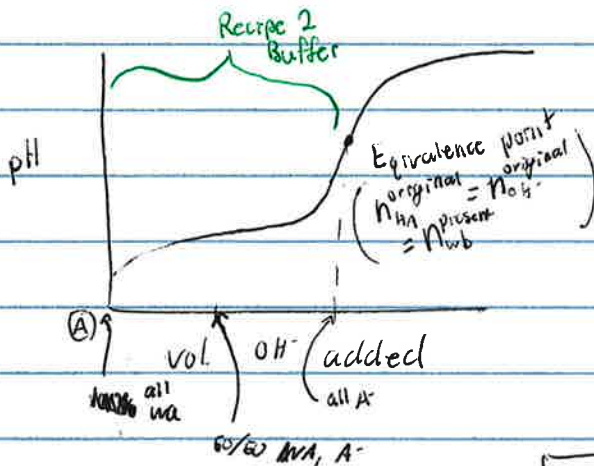 Recipe 2
Buffer
pH
Equivalence point
(n HA original = n OH- original
= n wb present)
(A)
vol. OH- added
all
wa
all A-
50/50 WA, A-